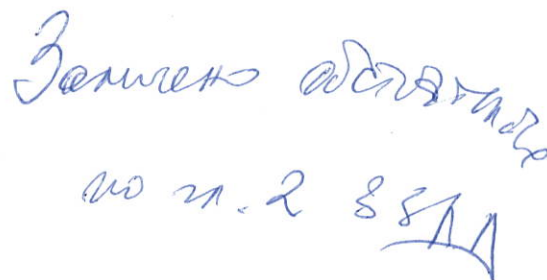 Заличено обстоятелство
по чл. 2 ЗЗЛД